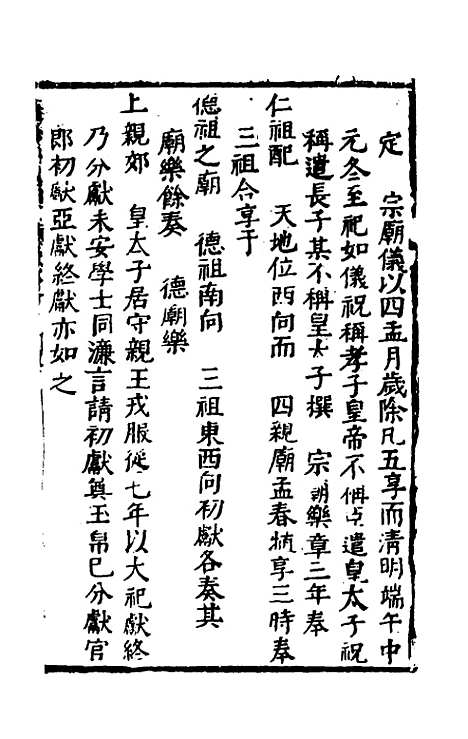 定　宗廟儀以四孟月歲除凡五享而清明端午中
元冬至祀如儀祝稱孝子皇帝不稱臣遣皇太子祝
稱遣長子某不稱皇太子撰　宗廟樂章三年奉
仁祖配　天地位西向而　四親廟孟春特享三時奉
三祖合享于
德祖之廟　德祖南向　三祖東西向初獻各奏其
廟樂餘奏　德廟樂
上親郊　皇太子居守親王戎服從七年以大祀獻終
乃分獻未安學士同濂言請初獻奠玉帛已分獻官
郎初獻亞獻終獻亦如之